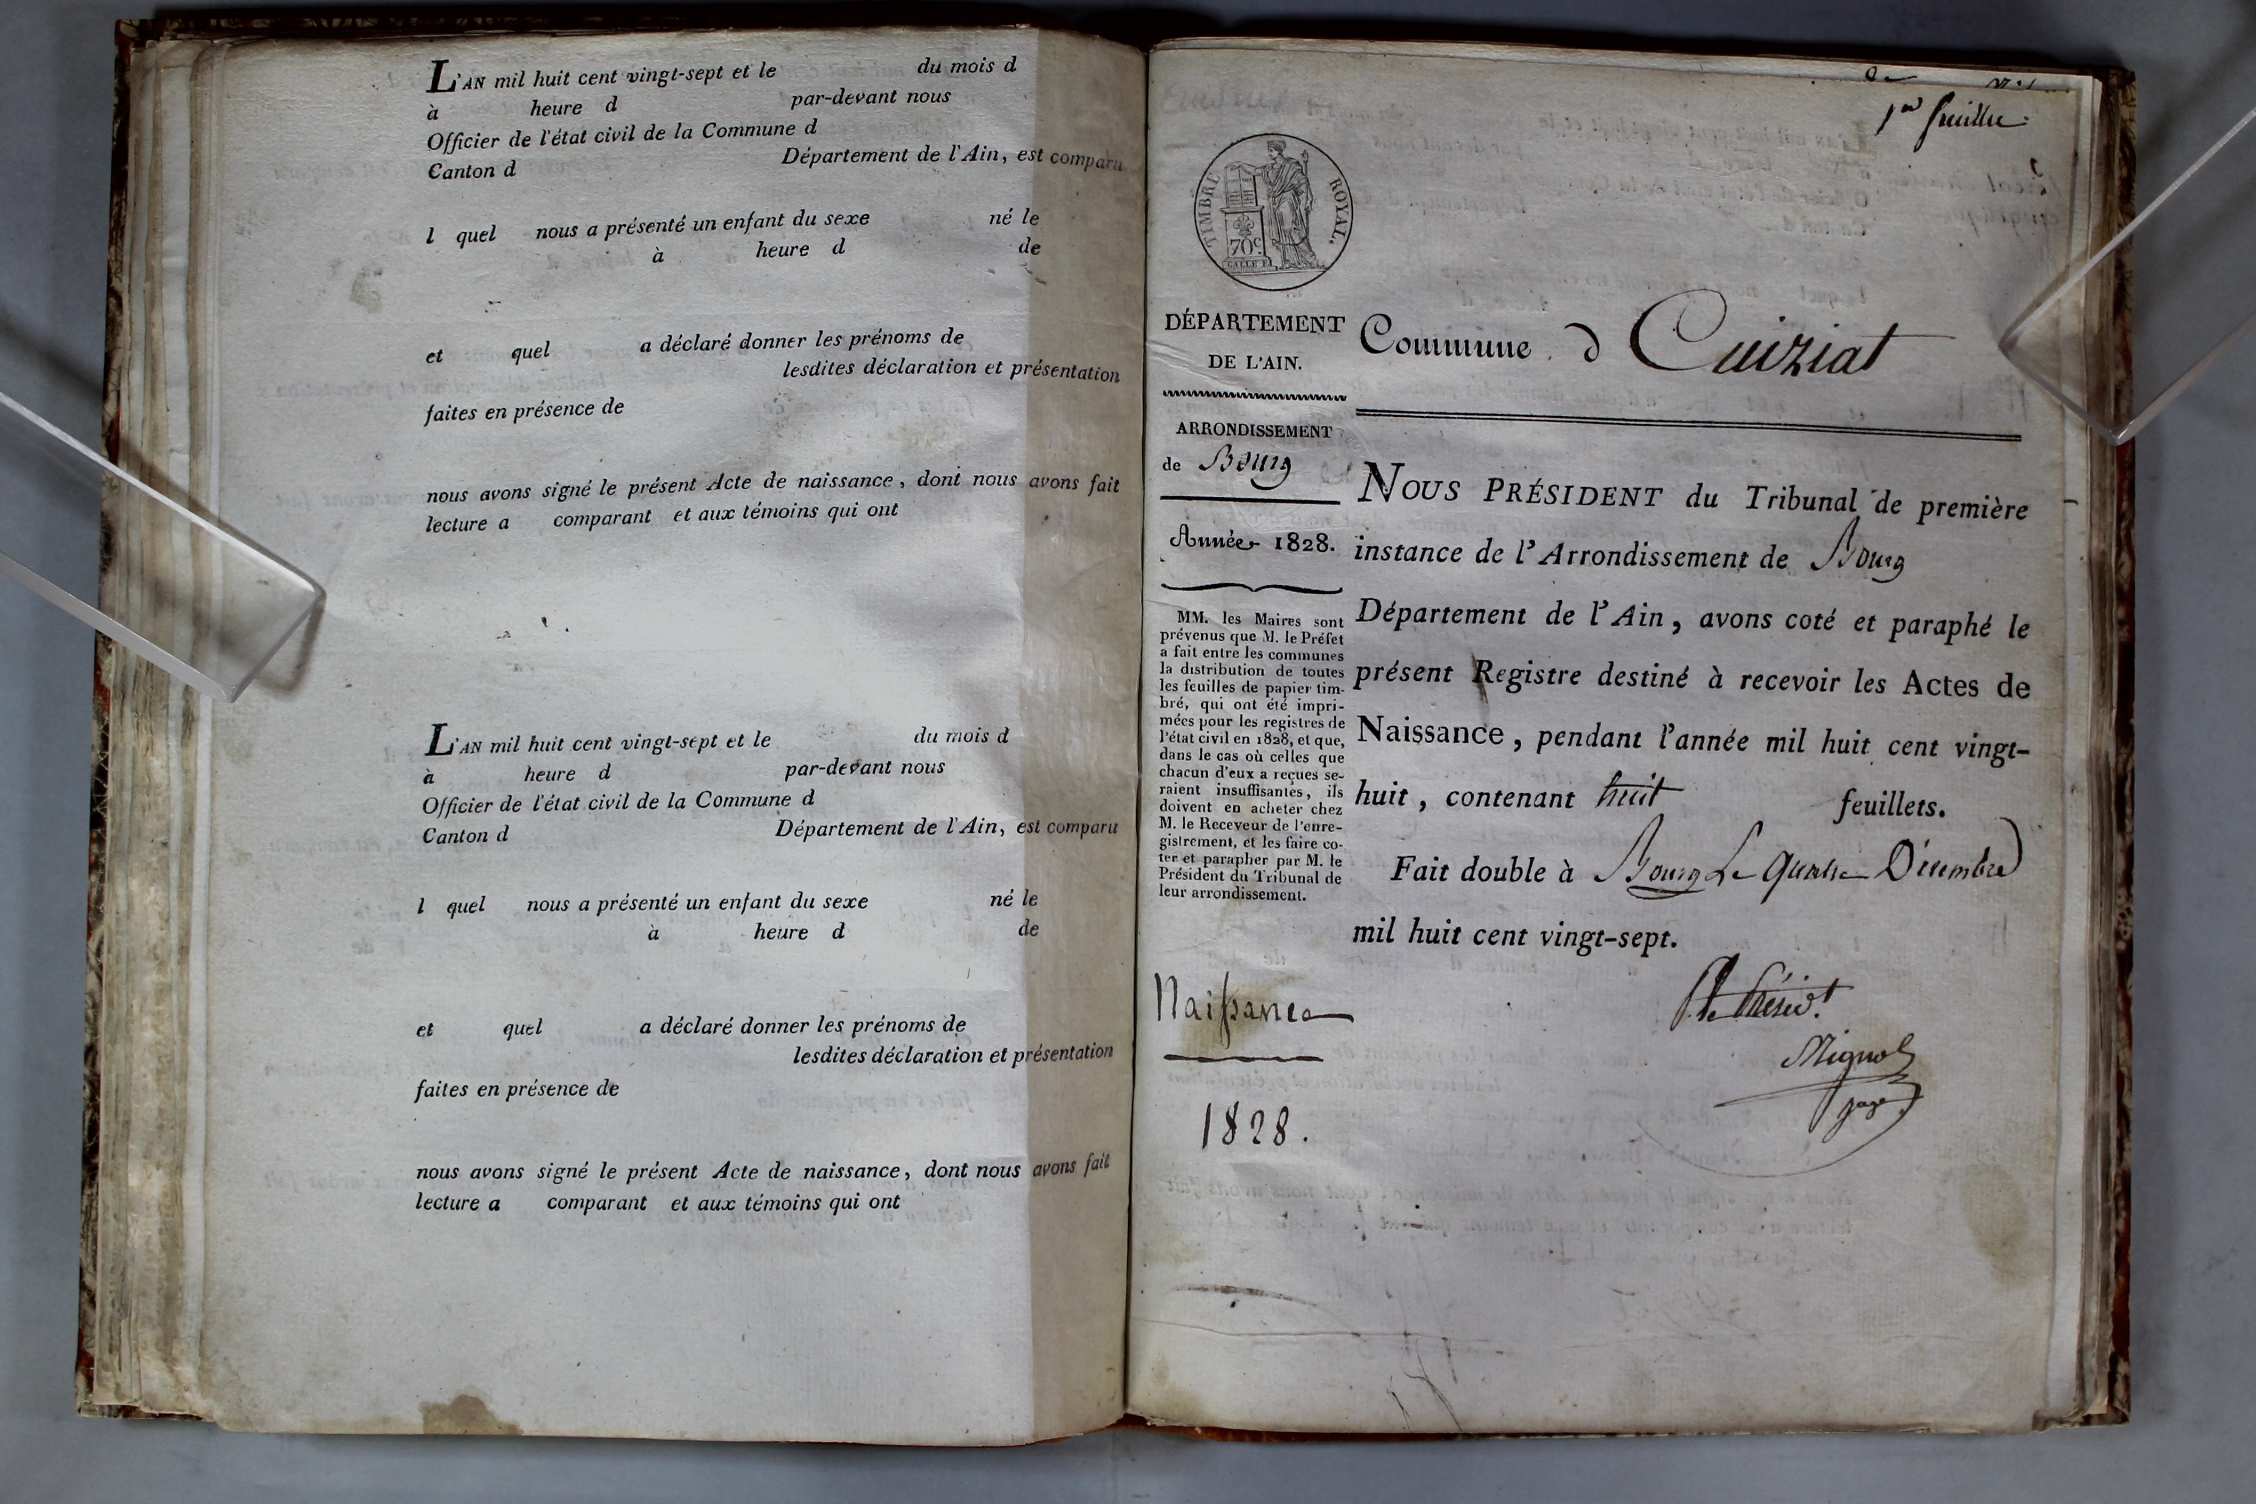 L'AN mil huit cent vingt-sept et le du mois d
à heure d par-devant nous
Officier de l'état civil de la Commune d
Canton d Département de l'Ain, est comparu
l quel nous a présenté un enfant du sexe né le
à heure d de
et quel a déclaré donner les prénoms de
lesdites déclaration et présentation
faites en présence de
nous avons signé le présent Acte de naissance, dont nous avons fait
lecture a comparant et aux témoins qui ont
L'AN mil huit cent vingt-sept et le du mois d
à heure d par-devant nous
Officier de l'état civil de la Commune d
Canton d Département de l'Ain, est comparu
l quel nous a présenté un enfant du sexe né le
à heure d de
et quel a déclaré donner les prénoms de
lesdites déclaration et présentation
faites en présence de
nous avons signé le présent Acte de naissance, dont nous avons fait
lecture a comparant et aux témoins qui ont
TIMBRE ROYAL.
70c
DÉPARTEMENT
DE L'AIN.
ARRONDISSEMENT
de Bourg
Année 1828.
MM. les Maires sont
prévenus que M. le Préfet
a fait entre les communes
la distribution de toutes
les feuilles de papier tim-
bré, qui ont été impri-
mées pour les registres de
l'état civil en 1828, et que,
dans le cas où celles que
chacun d'eux a reçues se-
raient insuffisantes, ils
doivent en acheter chez
M. le Receveur de l'enre-
gistrement, et les faire co-
ter et parapher par M. le
Président du Tribunal de
leur arrondissement.
Naissance
1828.
1er feuillet
Commune d Cuiziat
NOUS PRÉSIDENT du Tribunal de première
instance de l'Arrondissement de Bourg
Département de l'Ain, avons coté et paraphé le
présent Registre destiné à recevoir les Actes de
Naissance, pendant l'année mil huit cent vingt-
huit, contenant huit feuillets.
Fait double à Bourg Le quatre Décembre
mil huit cent vingt-sept.
Le Présidt.